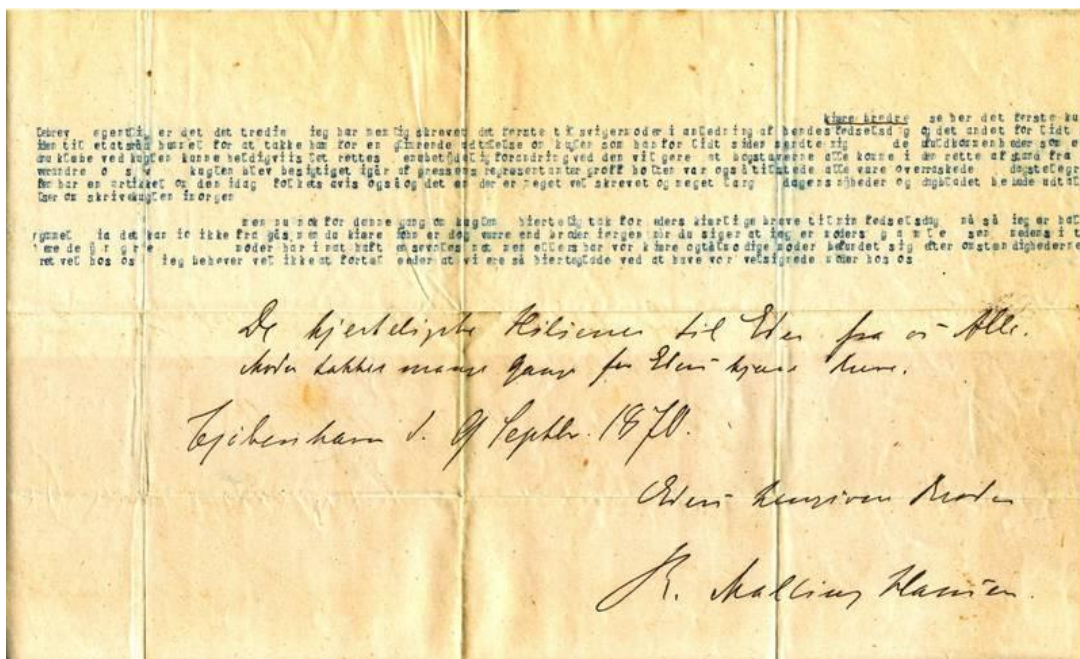 kiære brødre se her det første ku
lebrev egentlig er det det tredie ieg har nemlig skrevet det første til svigermoder i anledning af hendes fødselsdag og det andet for lidt
iden til etatsråd hummel for at takke ham for en glimrende udtalelse om kuglen som han for lidt siden sendte mig de ufuldkommenheder som e
dnu klæbe ved kuglen kunne heldigviis let rettes en ubetydelig forandring ved den vil gøre at bogstaverne alle komme i den rette afstand fra
verandre o s v kuglen blev besigtiget igår af pressens representanter groff var også tilstede alle vare overraskede dagstelegr
fen har en artikel om den idag folkets avis også og det er der er meget vel skrevet og meget lang dagens nyheder og dagbladet udtal
lser om skrivekuglen imorgen
men nu nok for denne gang om kuglen hiertelig tak for eders kiærlige breve til min fødselsdag nå så ieg er bal
gammel ia det kan io ikke fra gås men du kiære som er dog være end broder iørgen når du siger at ieg er moders gamle søn medens i t
ere de moder har i nat haft en søvnløs nat men ellers har vor kiære og tålmodige moder befundet sig efter omstendighederne
ret vel hos os ieg behøver vel ikke at fortæl eder at vi ere så hierteglade ved at have vor velsignede moder hos os
De hjerteligste Hilsener til Eder fra os Alle.
Moder takker mange Gange for Eders kjære Breve.
Kjøbenhavn d. 9 Septbr. 1870.
Eders hengivne Broder
R. Malling Hansen.